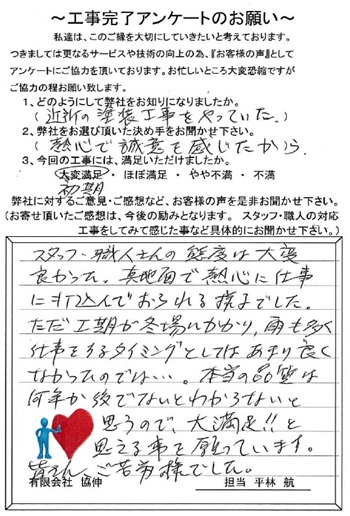 ～工事完了アンケートのお願い～
私達は、このご縁を大切にしていきたいと考えております。
つきましては更なるサービスや技術の向上の為、『お客様の声』として
アンケートにご協力を頂いております。お忙しいところ大変恐縮ですが
ご協力の程お願い致します。
1、どのようにして弊社をお知りになりましたか。
(近所の塗装工事をやっていた。)
2、弊社をお選び頂いた決め手をお聞かせ下さい。
(熱心で誠意を感じたから)
3、今回の工事には、満足いただけましたか。
大変満足・ほぼ満足・やや不満・不満
初期
弊社に対するご意見・ご感想など、お客様の声を是非お聞かせ下さい。
(お寄せ頂いたご感想は、今後の励みとなります。 スタッフ・職人の対応
工事をしてみて感じた事など具体的にお聞かせ下さい。)
スタッフ・職人さんの態度は大変
良かった。真地面で熱心に仕事
に打込んでおられる様でした。
ただ工期が冬場にかかり、雨も多く
仕事をするタイミングとしてはあまり良く
なかったのでは…。本当の品質は
何年か後でないとわからないと
思うので、大満足!!と
思える事を願っています。
皆さん、ご苦労様でした。
有限会社 協伸
担当 平林 航